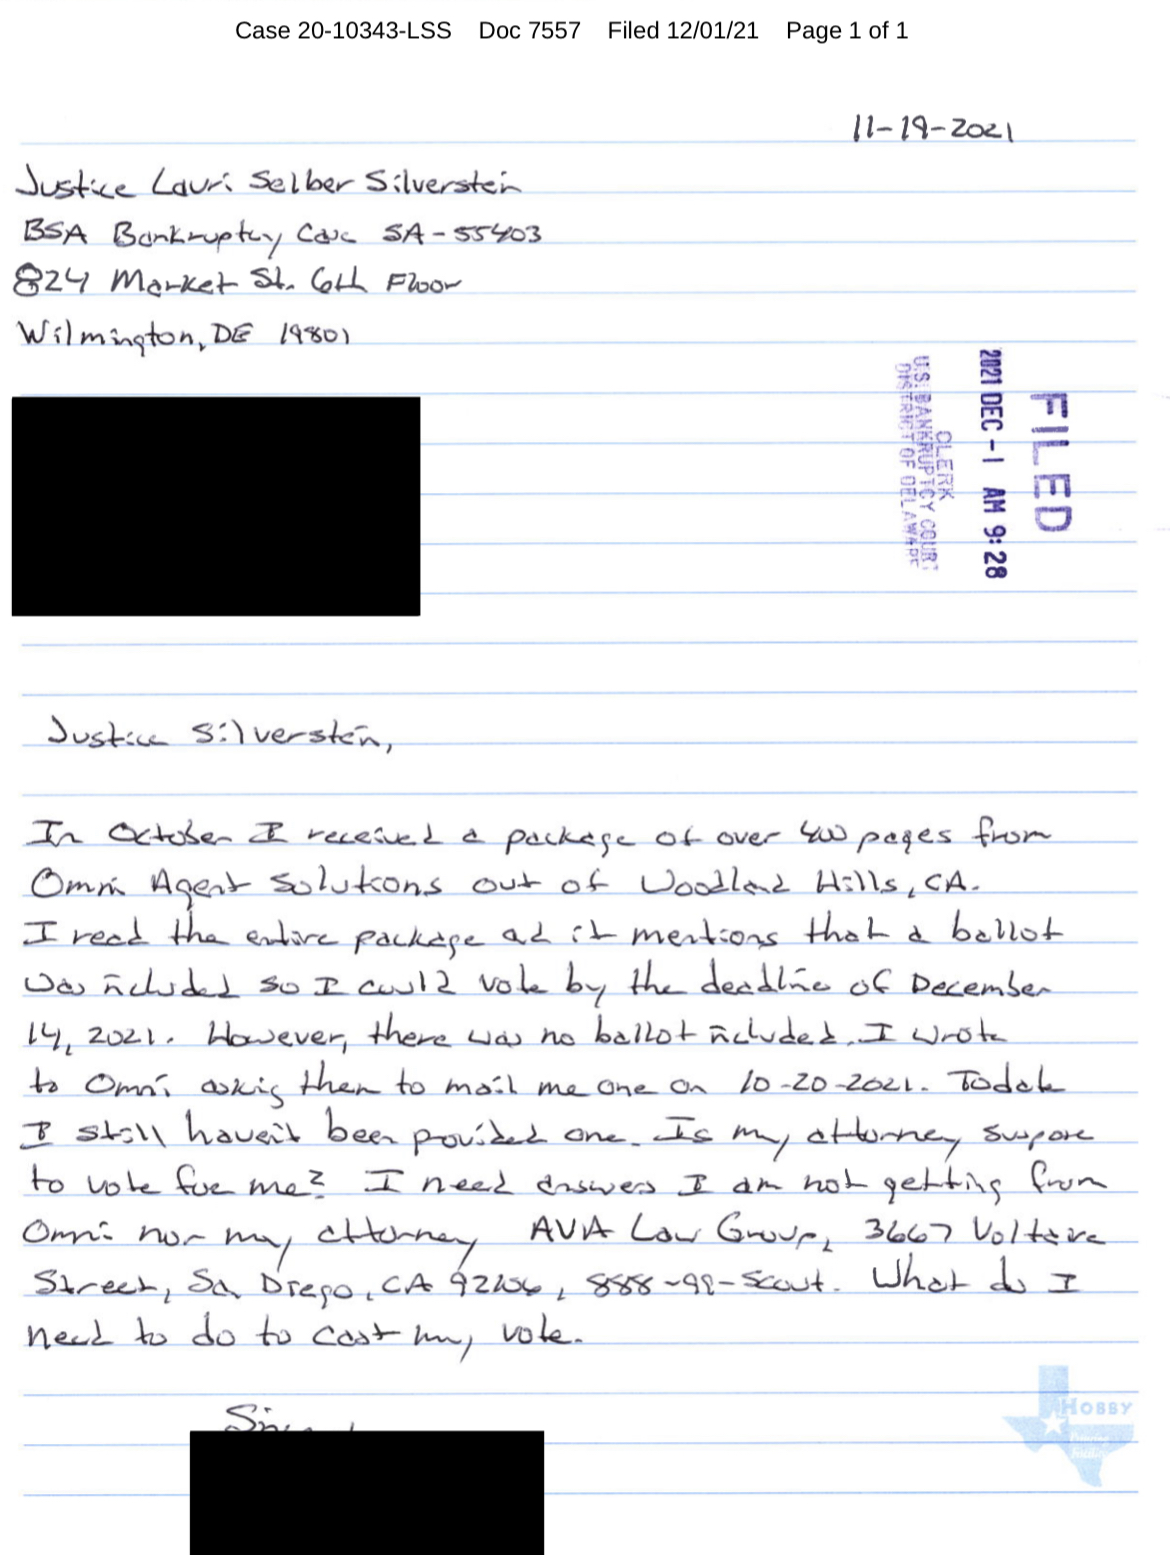 Case 20-10343-LSS Doc 7557 Filed 12/01/21 Page 1 of 1
11-19-2021
Justice Lauri Selber Silverstein
BSA Bankruptcy Case SA-55403
824 Market St. 6th Floor
Wilmington, DE 19801
FILED
2021 DEC -1 AM 9:28
CLERK
U.S. BANKRUPTCY COURT
DISTRICT OF DELAWARE
Justice Silverstein,
In October I received a package of over 400 pages from
Omni Agent Solutions out of Woodland Hills, CA.
I read the entire package ad it mentions that a ballot
was included so I could vote by the deadline of December
14, 2021. However, there was no ballot included. I wrote
to Omni asking them to mail me one on 10-20-2021. Todate
I still haven't been provided one. Is my attorney suppose
to vote for me? I need answers I am not getting from
Omni nor my attorney AVA Law Group, 3667 Voltaire
Street, San Diego, CA 92106, 8888-99-Scout. What do I
need to do to cast my vote.
HOBBY